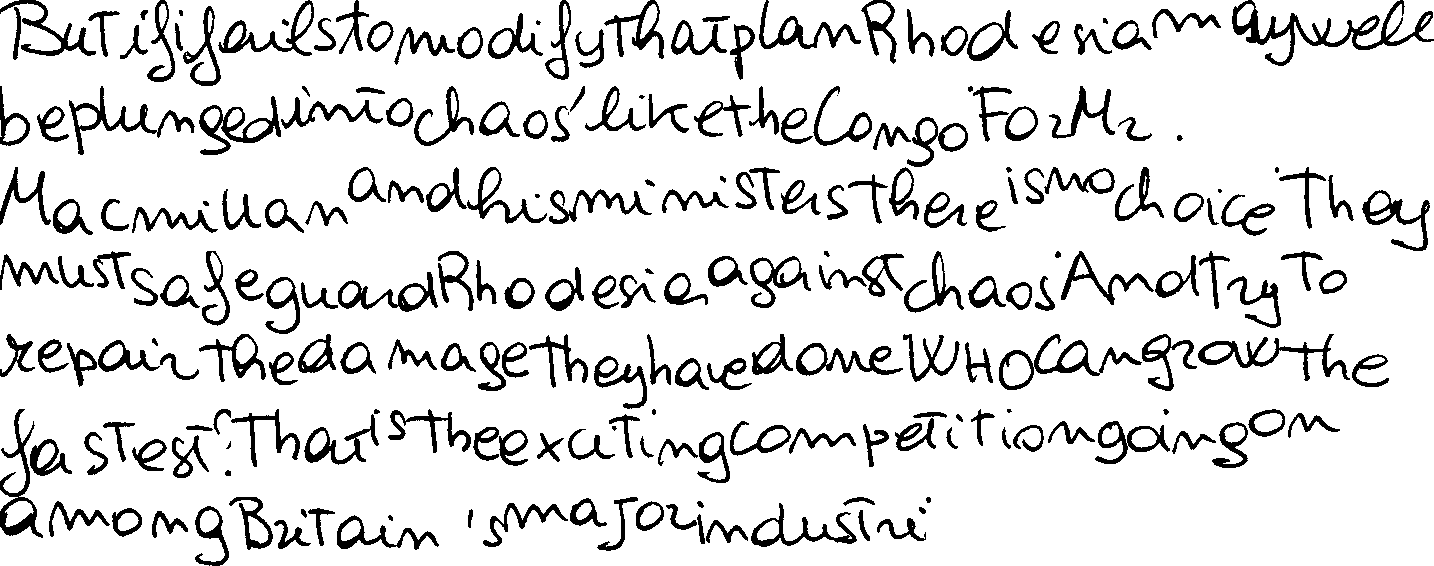 But if if fails to modify that plan Rhodesia may well
be plunged into chaos' like the Congo For Mr.
Macmillan and his ministers there is no choice They
must safeguard Rhodesia against chaos And try to
repair the damage they have done WHO can grow the
fastest? That is the exciting competition going on
among Britain 's major industri